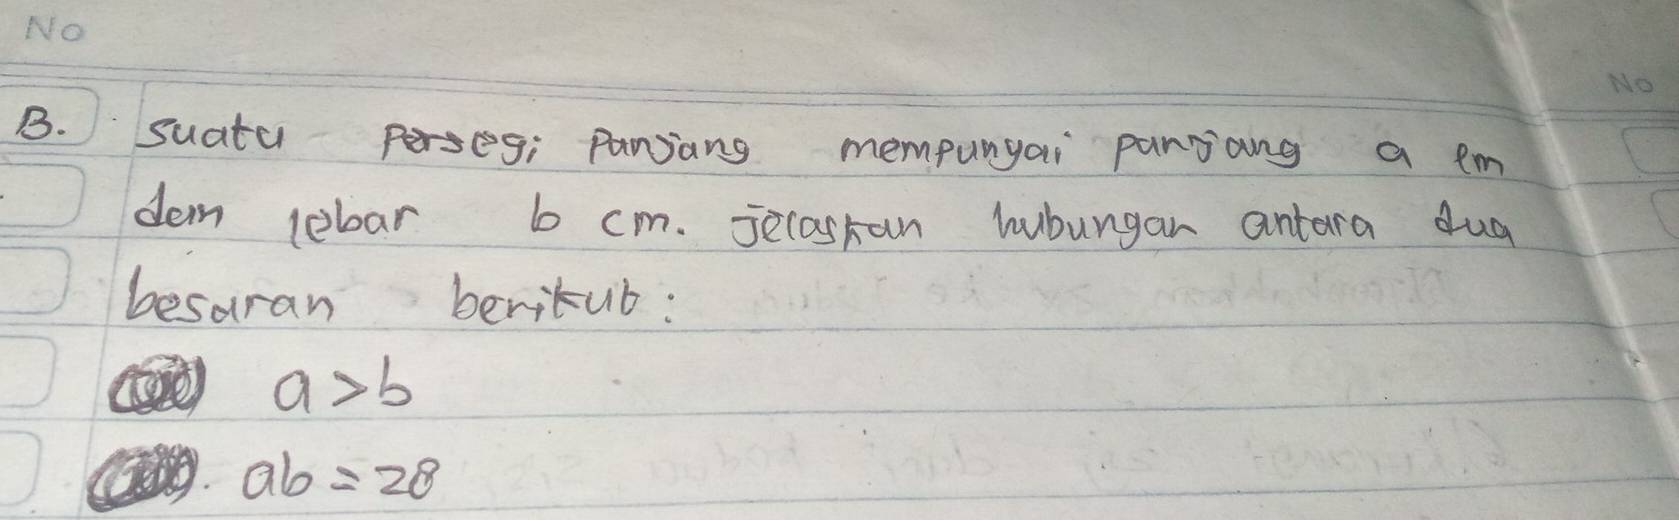 No
No
B. suatu persegi panjang mempunyai panjang a cm
dan lebar b cm. Jelaskan hubungan antara dua
besaran berikut:
a > b
ab = 28